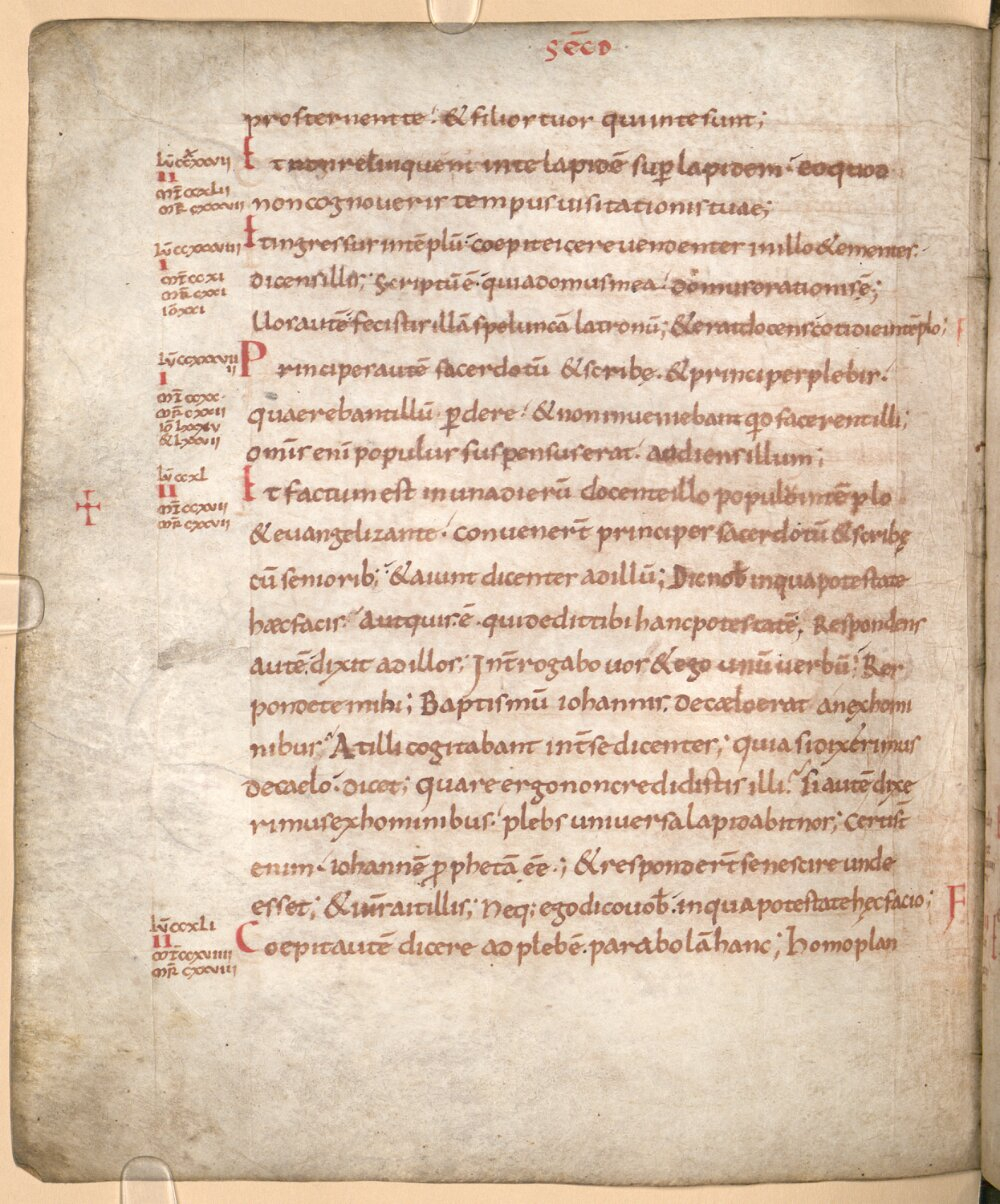 SECD
prosternent te. & filios tuos qui in te sunt;
lū ccxxxvii
II
mt̄ ccxlii
mr̄ cxxxvii
Et non relinquent in te lapidē sup̄ lapidem. eo quod
non cognoveris tempus visitationis tuae;
lū ccxxxviii
I
mt̄ ccxi
mr̄ cxxi
iō xxi
Et ingressus in tēplū. coepit eicere vendentes in illo & ementes.
dicens illis; Scriptū ē. quia domus mea domus orationis ē;
Vos autē fecistis illā speluncā latronū; & erat docens cotidie in tēplo;
lū ccxxxviiii
I
mt̄ ccxx
mr̄ cxxii
iō lxxxv
& lxxvii
Principes autē sacerdotū & scribę. & principes plebis.
quaerebant illū ꝑdere. & non inveniebant qd̄ facerent illi;
omnis enī populus suspensus erat. audiens illum;
lū ccxl
II
mt̄ ccxvii
mr̄ cxxvii
Et factum est in una dierū docente illo populū in tēplo
& evangelizante. convenert̄ principes sacerdotū & scribę
cū seniorib; & aiunt dicentes ad illū; Dic nob̄ in qua potestate
haec facis. Aut quis ē. qui dedit tibi hanc potestatē; Respondens
autē dixit ad illos; Int̄rogabo vos & ego unū verbū. Res
pondete mihi; Baptismū iohannis. de caelo erat an ex homi
nibus. At illi cogitabant int̄ se dicentes; quia si dixerimus
de caelo. dicet; quare ergo non credidistis illi. Si autē dixe
rimus ex hominibus. plebs universa lapidabit nos; certi st̄
enim. iohannē ꝓphetā ēē.; & respondert̄ se nescire unde
esset; & ih̄s ait illis; Neq; ego dico vob̄. in qua potestate hęc facio;
lū ccxli
II
mt̄ ccxviiii
mr̄ cxxviii
Coepit autē dicere ad plebē. parabolā hanc; Homo plan